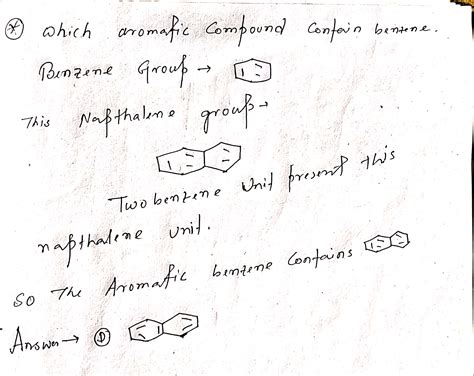 * Which aromatic Compound Contain benzene.
Benzene Group →
This Napthalene group →
Two benzene Unit present this
napthalene unit.
So The Aromatic benzene Contains
Answer → D